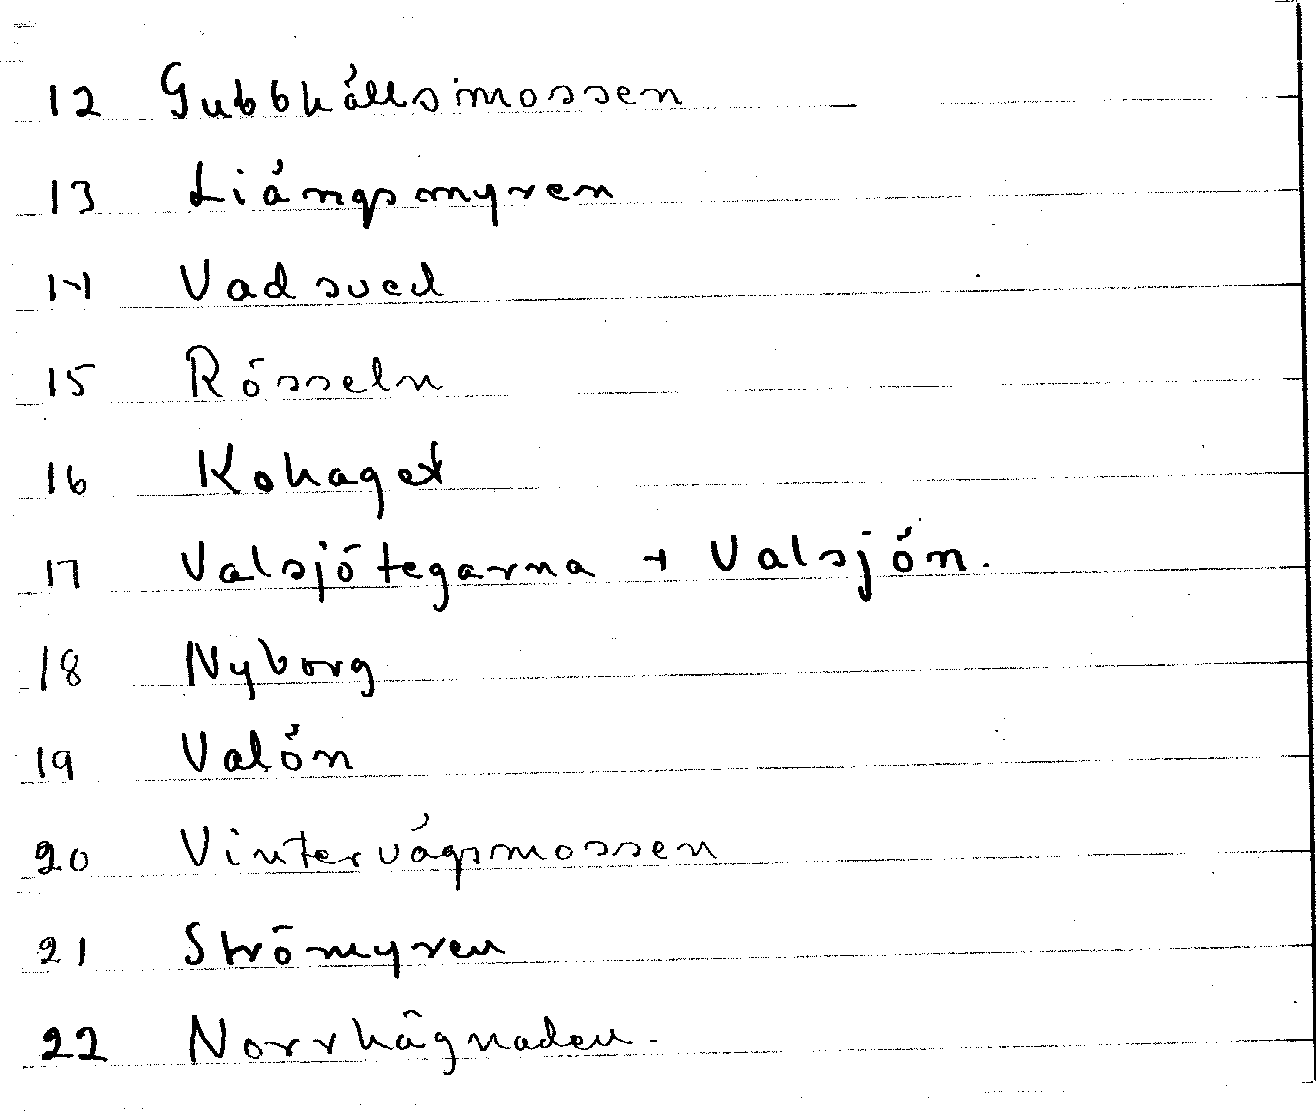 12 Gubbhållsmossen
13 Liångsmyren
14 Vadsved
15 Rösseln
16 Kohaget
17 Valsjötegarna + Valsjön.
18 Nyborg
19 Valön
20 Vintervågsmossen
21 Strömyren
22 Norrhägnaden